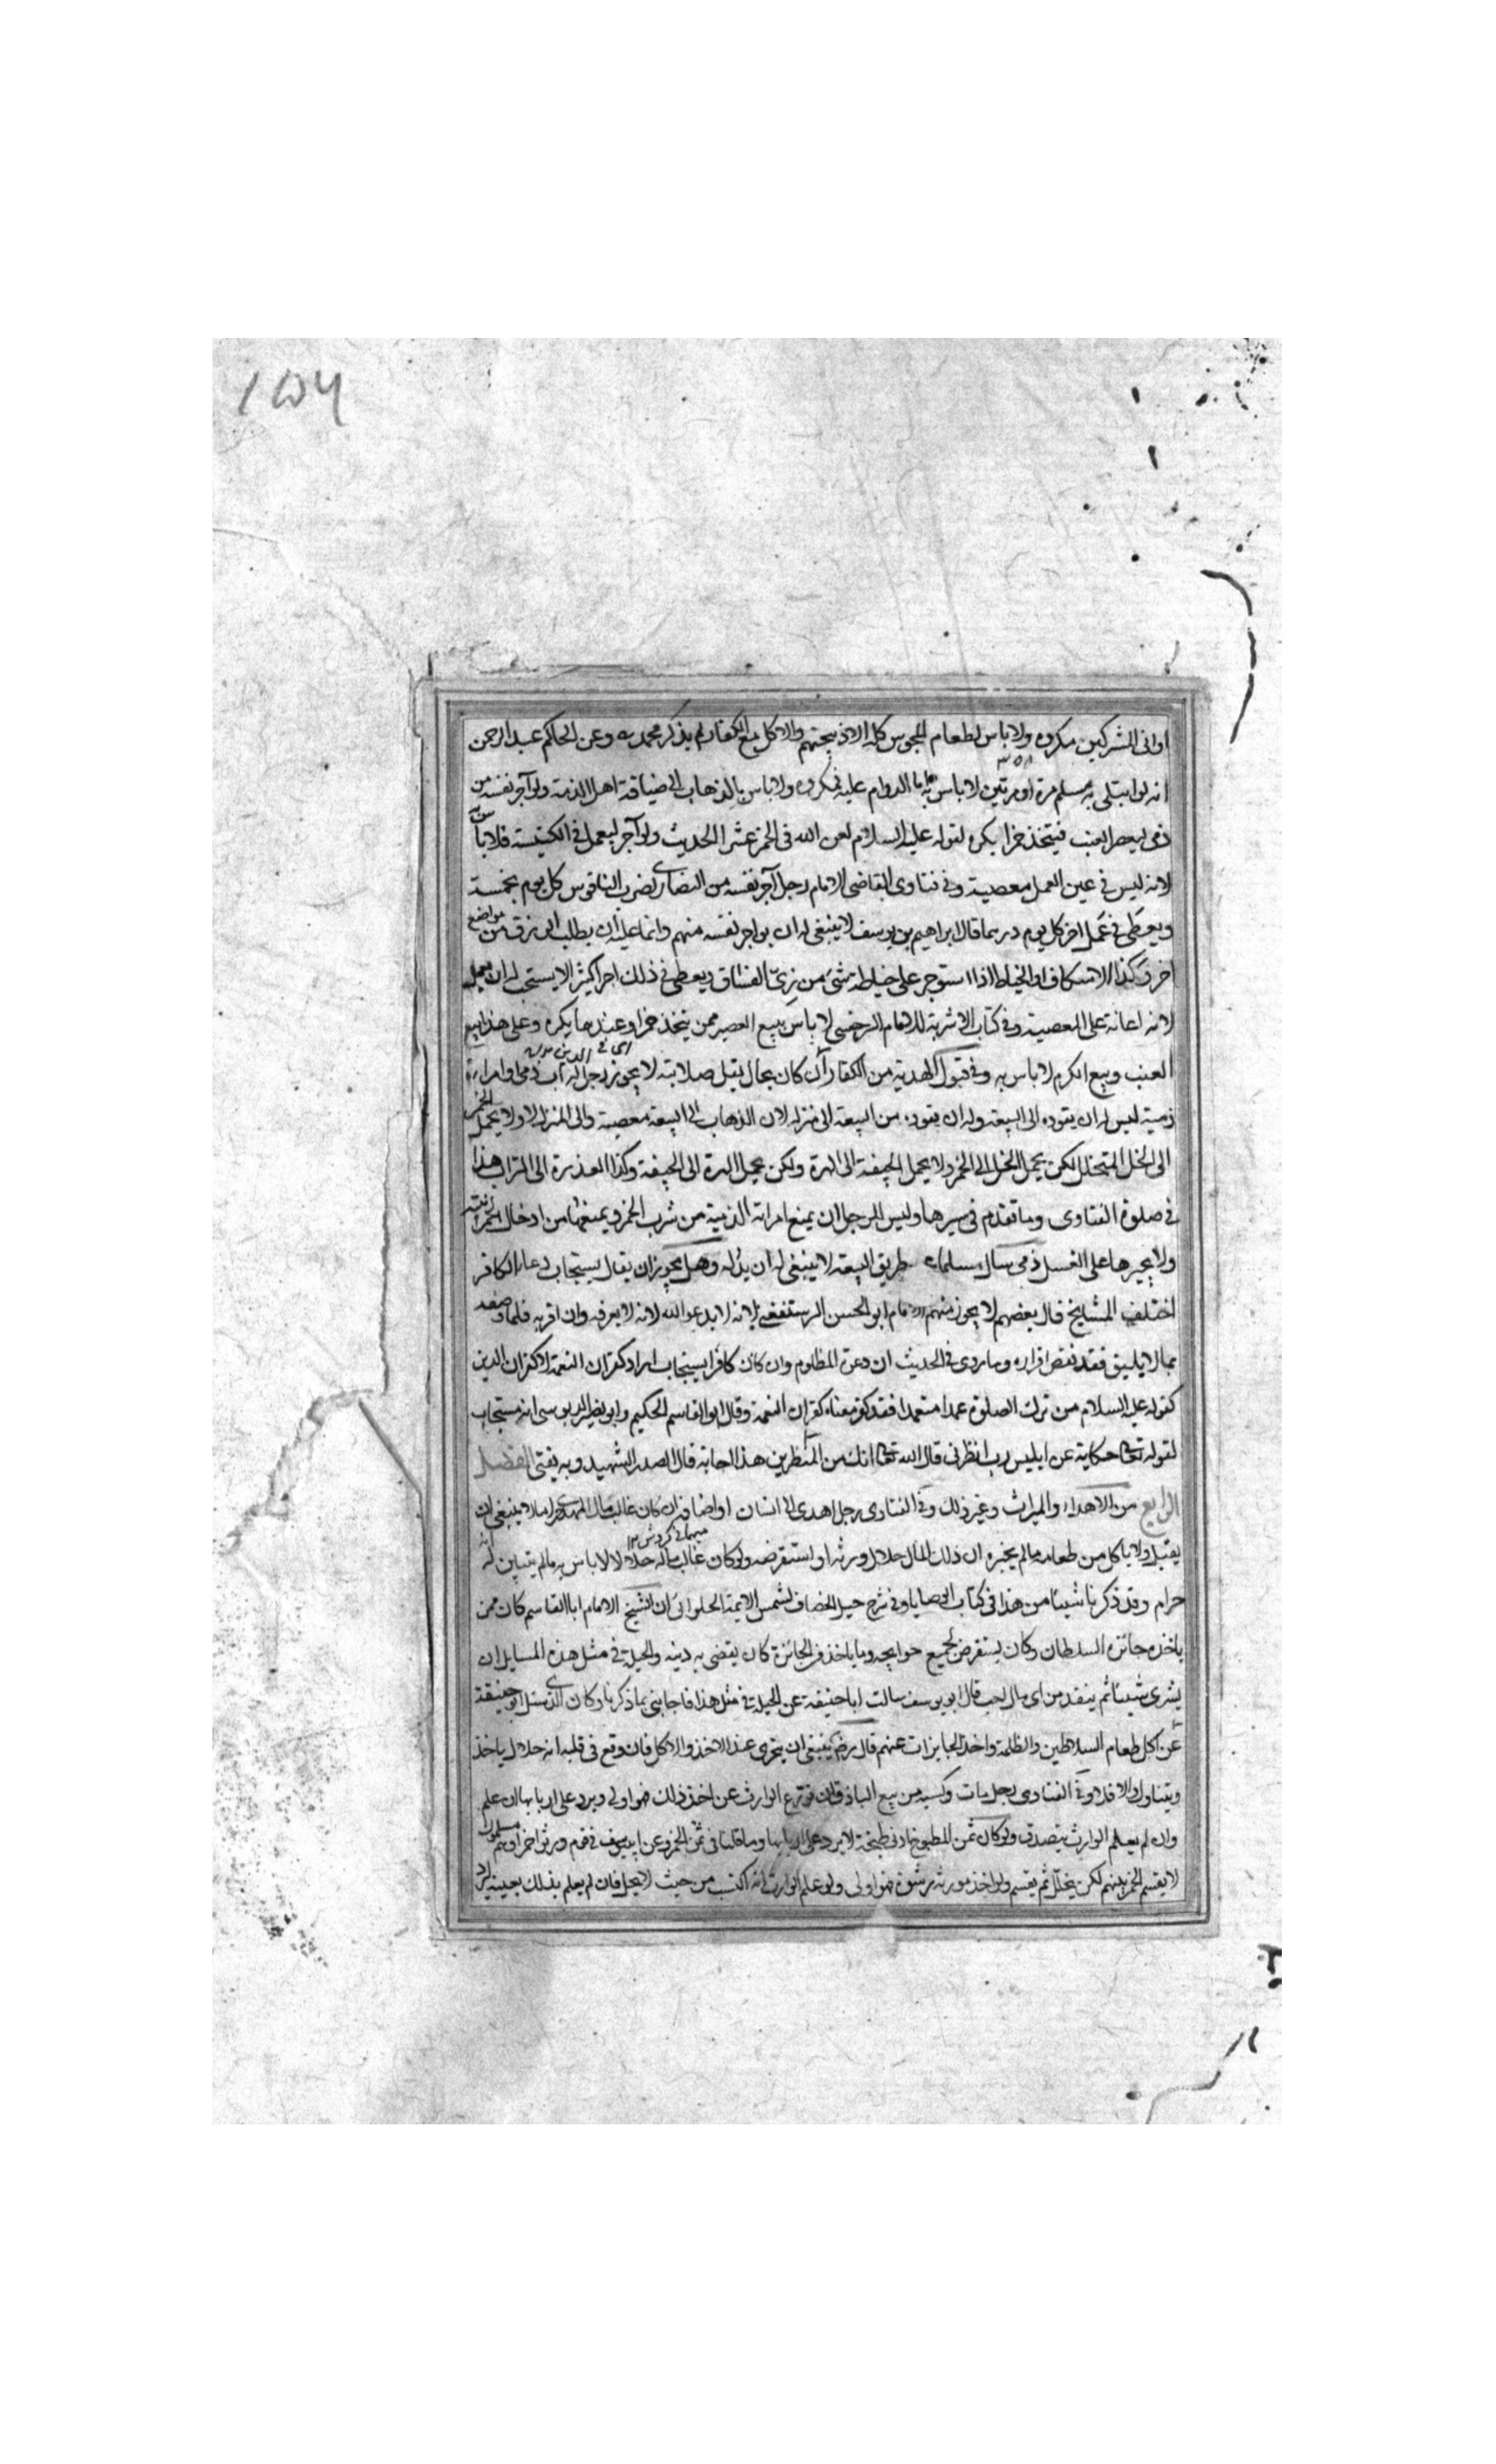 ١٥٦
اوانى المشركين مكروه ولا باس بطعام المجوس كله الا ذبيحتهم والاكل مع الكفار لم يذكر محمد رح وعن الحاكم عبد الرحمن
انه لو ابتلى به مسلم مرة او مرتين لا باس به اما الدوام عليه فمكروه ولا باس بالذهاب الى ضيافة اهل الذمة ولو آجر نفسه من
ذمى ليعصر العنب فيتخذ خمرا يكره لقوله عليه السلام لعن الله فى الخمر عشرا الحديث ولو آجر ليعمل فى الكنيسة فلا باس
لانه ليس فى عين العمل معصية وفى فتاوى القاضى الامام رجل آجر نفسه من النصارى لضرب الناقوس كل يوم بخمسة
ويعطى فى عمل اخر كل يوم درهما قال ابراهيم بن يوسف لا ينبغى له ان يواجر نفسه منهم وانما عليه ان يطلب الرزق من مواضع
اخر وكذا الاسكاف او الخياط اذا استوجر على خياطة شئ من زى الفساق ويعطى فى ذلك اجرا كثيرا لا يستحب له ان يعمل
لانه اعانة على المعصية وفى كتاب الاشربة للامام السرخسى لا باس ببيع العصير ممن يتخذ خمرا وعندهما يكره وعلى هذا بيع
العنب وبيع الكرم لا باس به وفى قبول الهدية من الكفار ان كان بحال يقل صلابته لا يجوز رجل له اب ذمى او امراة
ذمية ليس له ان يقوده الى البيعة وله ان يقوده من البيعة الى منزله لان الذهاب الى البيعة معصية والى المنزل لا ولا يحمل الخمر
الى الخل للتخلل لكن يحمل الخل الى الخمر ولا يحمل الجيفة الى الهرة ولكن يحمل الهرة الى الجيفة وكذا العذرة الى التراب هذا
فى صلوة الفتاوى وما تقدم فى سيرها وليس للرجل ان يمنع امراته الذمية من شرب الخمر ويمنعها من ادخال الخمر بيته
ولا يجبرها على الغسل ذمى سال مسلما طريق البيعة لا ينبغى له ان يدله وهل يجوز ان يقال يستجاب دعاء الكافر
اختلف المشايخ قال بعضهم لا يجوز منهم الامام ابو الحسن الرستغفنى لانه لا يدعو الله لانه لا يعرفه وان اقر به فلما وصفه
بما لا يليق فقد نقض اقراره وما روى فى الحديث ان دعوة المظلوم وان كان كافرا يستجاب اراد كفران النعمة لا كفران الدين
كقوله عليه السلام من ترك الصلوة عمدا متعمدا فقد كفر معناه كفران النعمة وقال ابو القاسم الحكيم وابو نصر الدبوسى انه مستجاب
لقوله تعالى حكاية عن ابليس رب انظرنى قال الله تعالى انك من المنظرين هذا اجابة قال الصدر الشهيد وبه يفتى الفصل
الرابع من الاهداء والميراث وغير ذلك وفى الفتاوى رجل اهدى الى انسان او اضافه ان كان غالب مال المهدى حراما لا ينبغى ان
يقبل ولا ياكل من طعامه ما لم يخبره ان ذلك المال حلال ورثه او استقرضه ولو كان غالب ماله حلالا لا باس به ما لم يتبين له انه
حرام وقد ذكرنا شيئا من هذا فى كتاب الوصايا وفى شرح حيل الخصاف لشمس الايمة الحلوانى ان الشيخ الامام ابا القاسم كان ممن
ياخذ جائزة السلطان وكان يستقرض لجميع حوايجه وما ياخذ من الجائزة كان يقضى به دينه والحيلة فى مثل هذه المسايل ان
يشترى شيئا ثم ينقد من اى مال احب قال ابو يوسف سالت ابا حنيفة عن الحيلة فى مثل هذا فاجابنى بما ذكرنا وكان الذى سئل ابو حنيفة
عن اكل طعام السلاطين والظلمة واخذ الجايزات عنهم قال رض ينبغى ان يتحرى عند الاخذ والاكل فان وقع فى قلبه انه حلال ياخذ
ويتناول والا فلا وفى الفتاوى رجل مات وكسبه من بيع الباذق ان تورع الوارث عن اخذ ذلك فهو اولى ويرد على اربابها ان علم
وان لم يعلم الوارث يتصدق ولو كان ثمن المطبوخ ادنى طبخة لا يرد على اربابها وما قلنا فى ثمن الخمر وعن ابى يوسف فى قوم ورثوا خمرا وهم مسلمون
لا يقسم الخمر بينهم لكن يخلل ثم يقسم ولو اخذ مورثه رشوة فهو اولى ولو علم الوارث انه اكتسب من حيث لا يحل فان لم يعلم بذلك بعينه